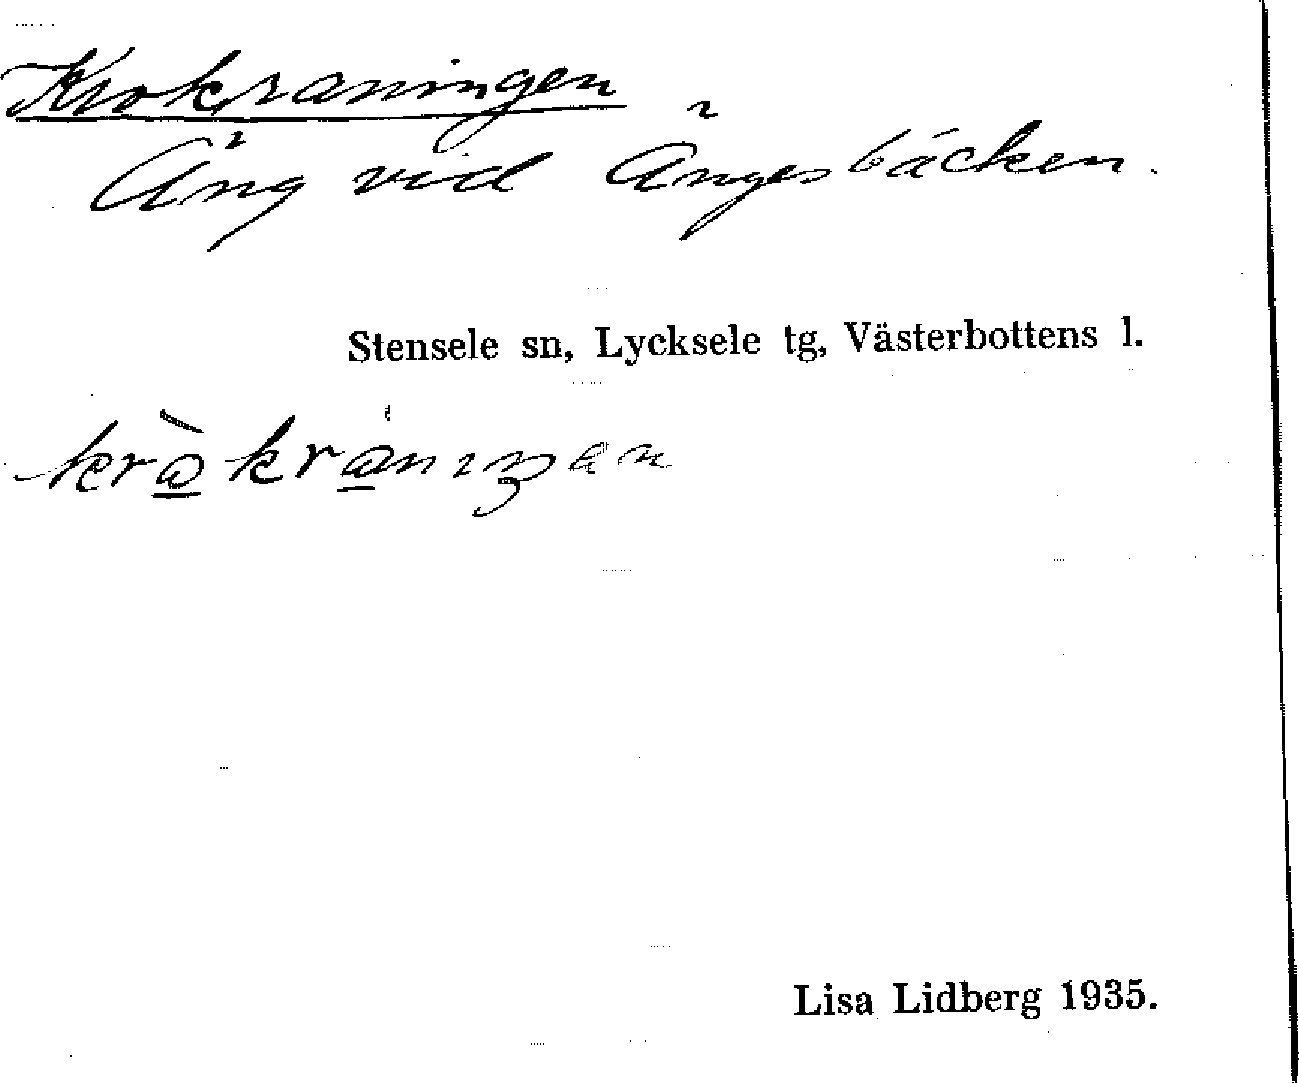 Krokraningen
Äng vid Ängesbäcken.
Stensele sn, Lycksele tg, Västerbottens l.
Lisa Lidberg 1935.